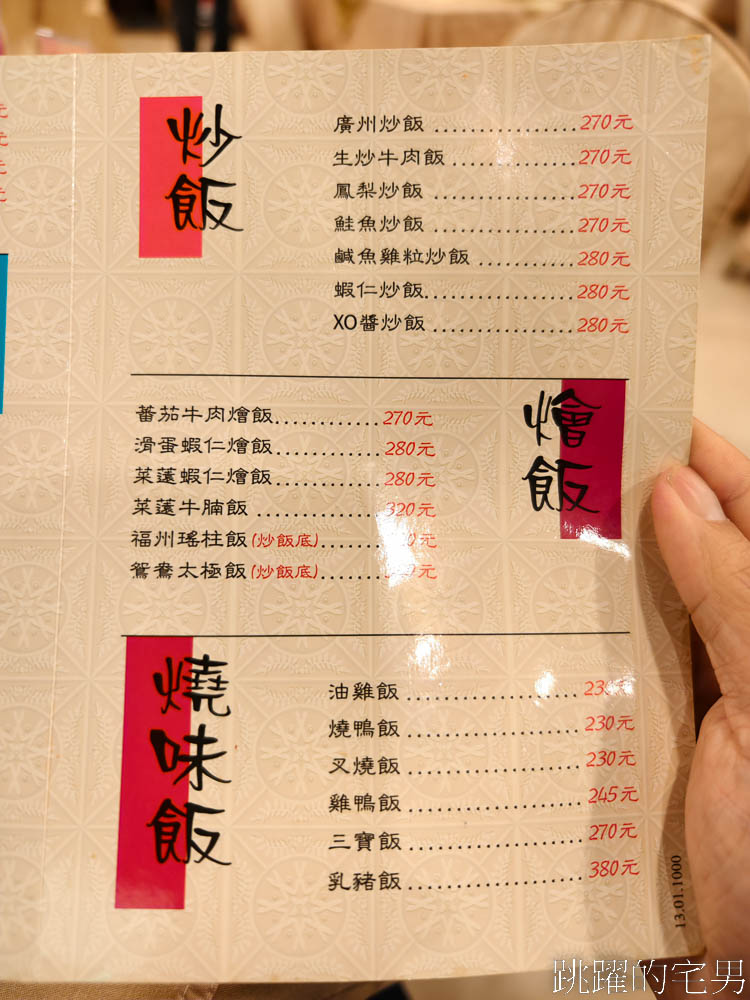 炒飯
廣州炒飯 ................ 270元
生炒牛肉飯 ............. 270元
鳳梨炒飯 ................ 270元
鮭魚炒飯 ................ 270元
鹹魚雞粒炒飯 .......... 280元
蝦仁炒飯................. 280元
XO醬炒飯 ............... 280元
燴飯
蕃茄牛肉燴飯............ 270元
滑蛋蝦仁燴飯............ 280元
菜薳蝦仁燴飯............ 280元
菜薳牛腩飯 .............. 320元
福州瑤柱飯(炒飯底)....... 元
鴛鴦太極飯(炒飯底)....... 元
燒味飯
油雞飯 .................... 元
燒鴨飯 .................... 230元
叉燒飯 .................... 230元
雞鴨飯 .................... 245元
三寶飯 .................... 270元
乳豬飯 .................... 380元
13.01.1000
跳躍的宅男